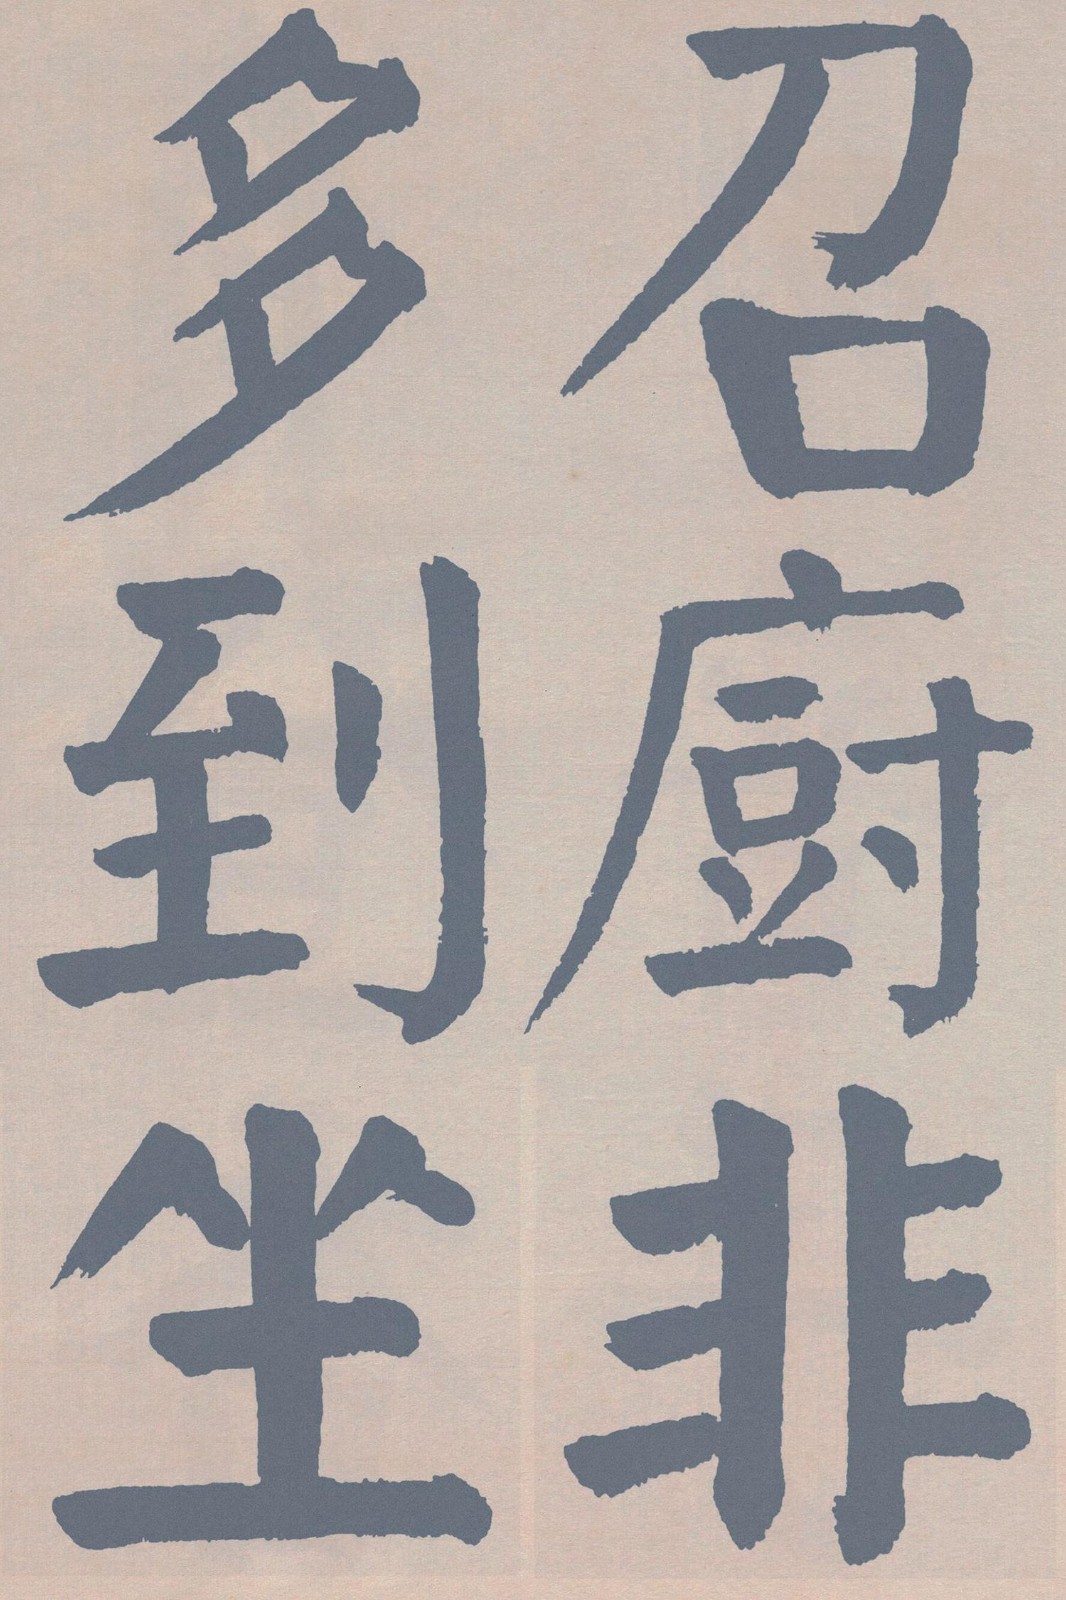 召厨非
多到坐